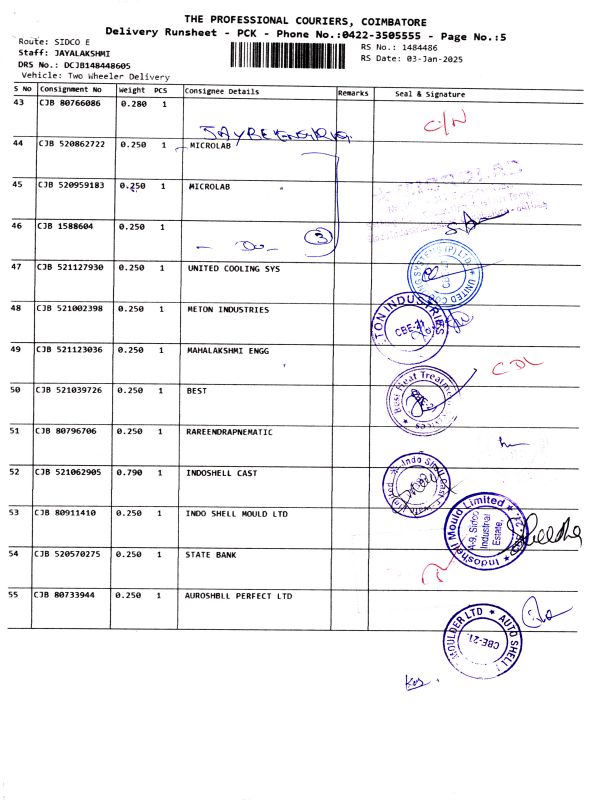 THE PROFESSIONAL COURIERS, COIMBATORE
Delivery Runsheet - PCK - Phone No.:0422-3505555 - Page No.:5
Route: SIDCO E
RS No.: 1484486
Staff: JAYALAKSHMI
RS Date: 03-Jan-2025
DRS No.: DCJB148448605
Vehicle: Two Wheeler Delivery
S No Consignment No Weight PCS Consignee Details Remarks Seal & Signature
43 CJB 80766086 0.280 1 C/N
44 CJB 520862722 0.250 1 MICROLAB
45 CJB 520959183 0.250 1 MICROLAB
46 CJB 1588604 0.250 1 - Do - 3
47 CJB 521127930 0.250 1 UNITED COOLING SYS
48 CJB 521002398 0.250 1 METON INDUSTRIES
TON INDUSTRIES CBE-21
49 CJB 521123036 0.250 1 MAHALAKSHMI ENGG CDL
50 CJB 521039726 0.250 1 BEST
Best Heat Treatment
51 CJB 80796706 0.250 1 RAREENDRAPNEMATIC
52 CJB 521062905 0.790 1 INDOSHELL CAST
53 CJB 80911410 0.250 1 INDO SHELL MOULD LTD
Indoshell Mould Limited * CBE-21. *
A-9, Sidco
Industrial
Estate,
54 CJB 520570275 0.250 1 STATE BANK
55 CJB 80733944 0.250 1 AUROSHBLL PERFECT LTD
MOULDER LTD * AUTO SHELL
CBE-21.